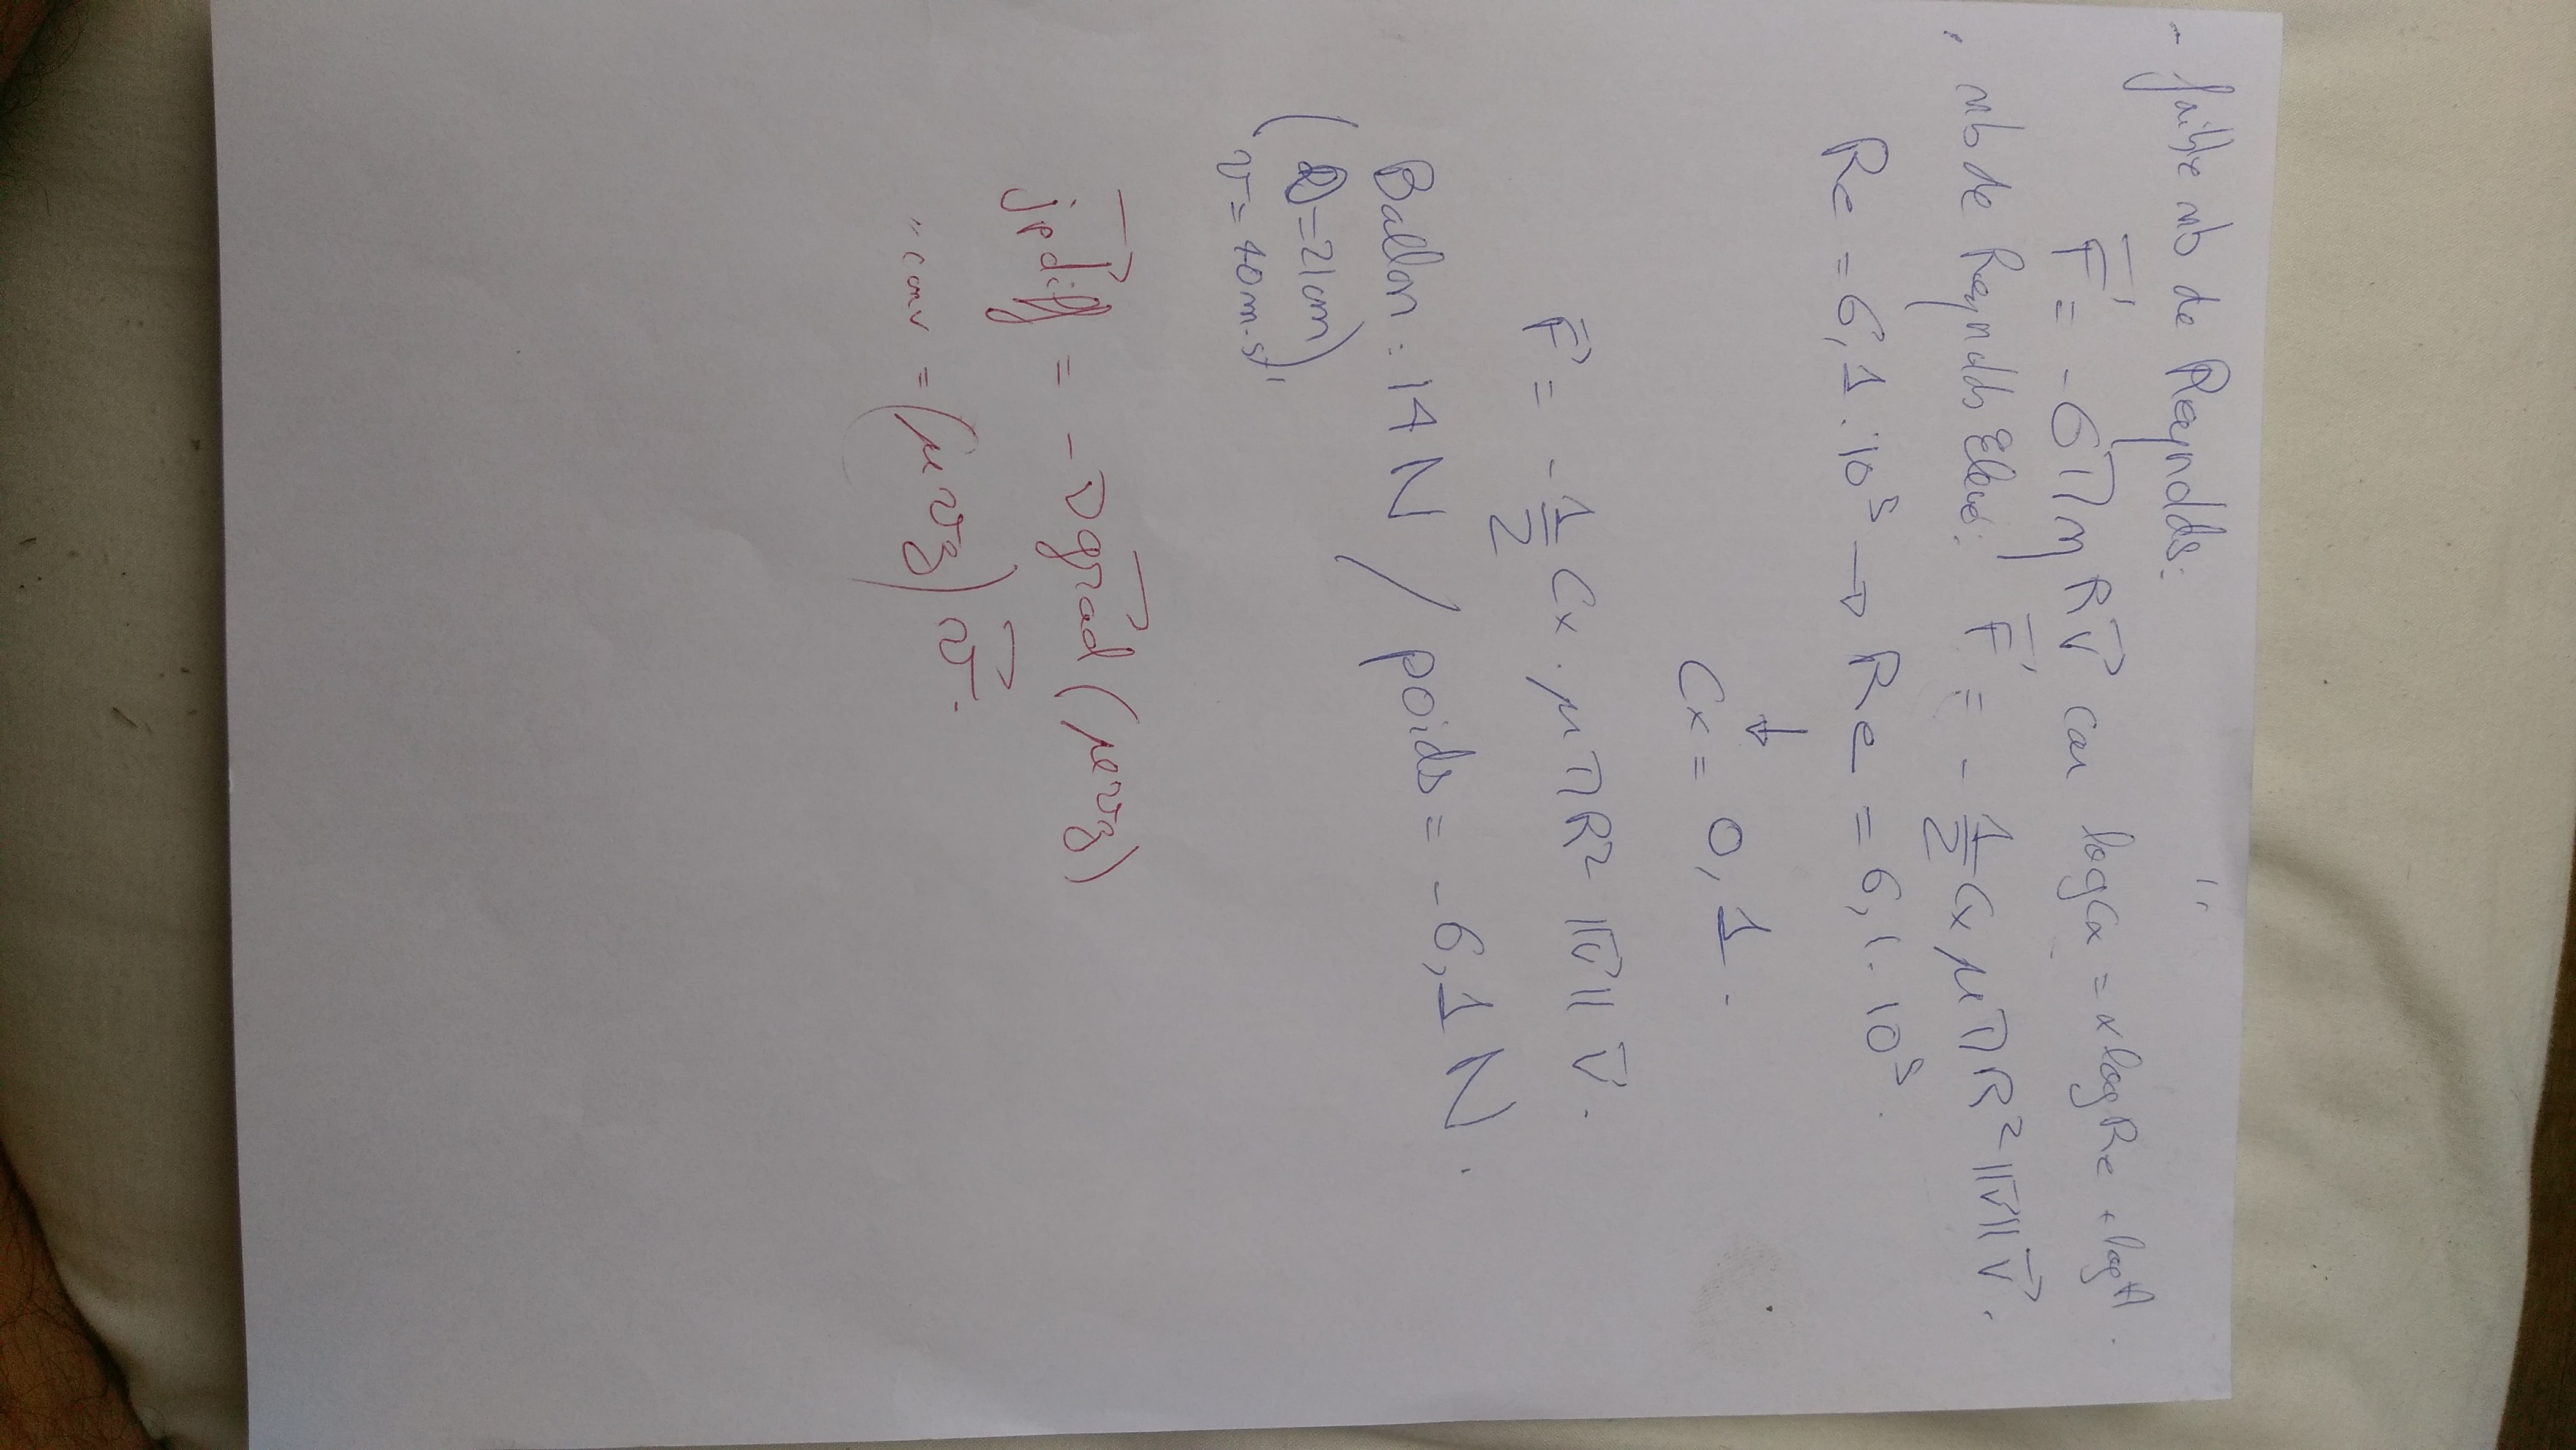 - faible nb de Reynolds:
F⃗ = -6πηRV⃗ car log Cx = x log Re + log A.
- nb de Reynolds Elevé: F⃗ = -1/2 Cx μπR² ||V⃗|| V⃗.
Re = 6,1.10⁵ → Re = 6,1.10⁵.
↓
Cx = 0,1.
F⃗ = -1/2 Cx. μπR² ||V⃗|| V⃗.
Ballon: 14 N / poids = -6,1 N.
(D=21cm
v = 40m.s⁻¹)
j⃗p diff = -ν grad⃗ (μ v₃)
" conv = (μ v₃) v⃗.